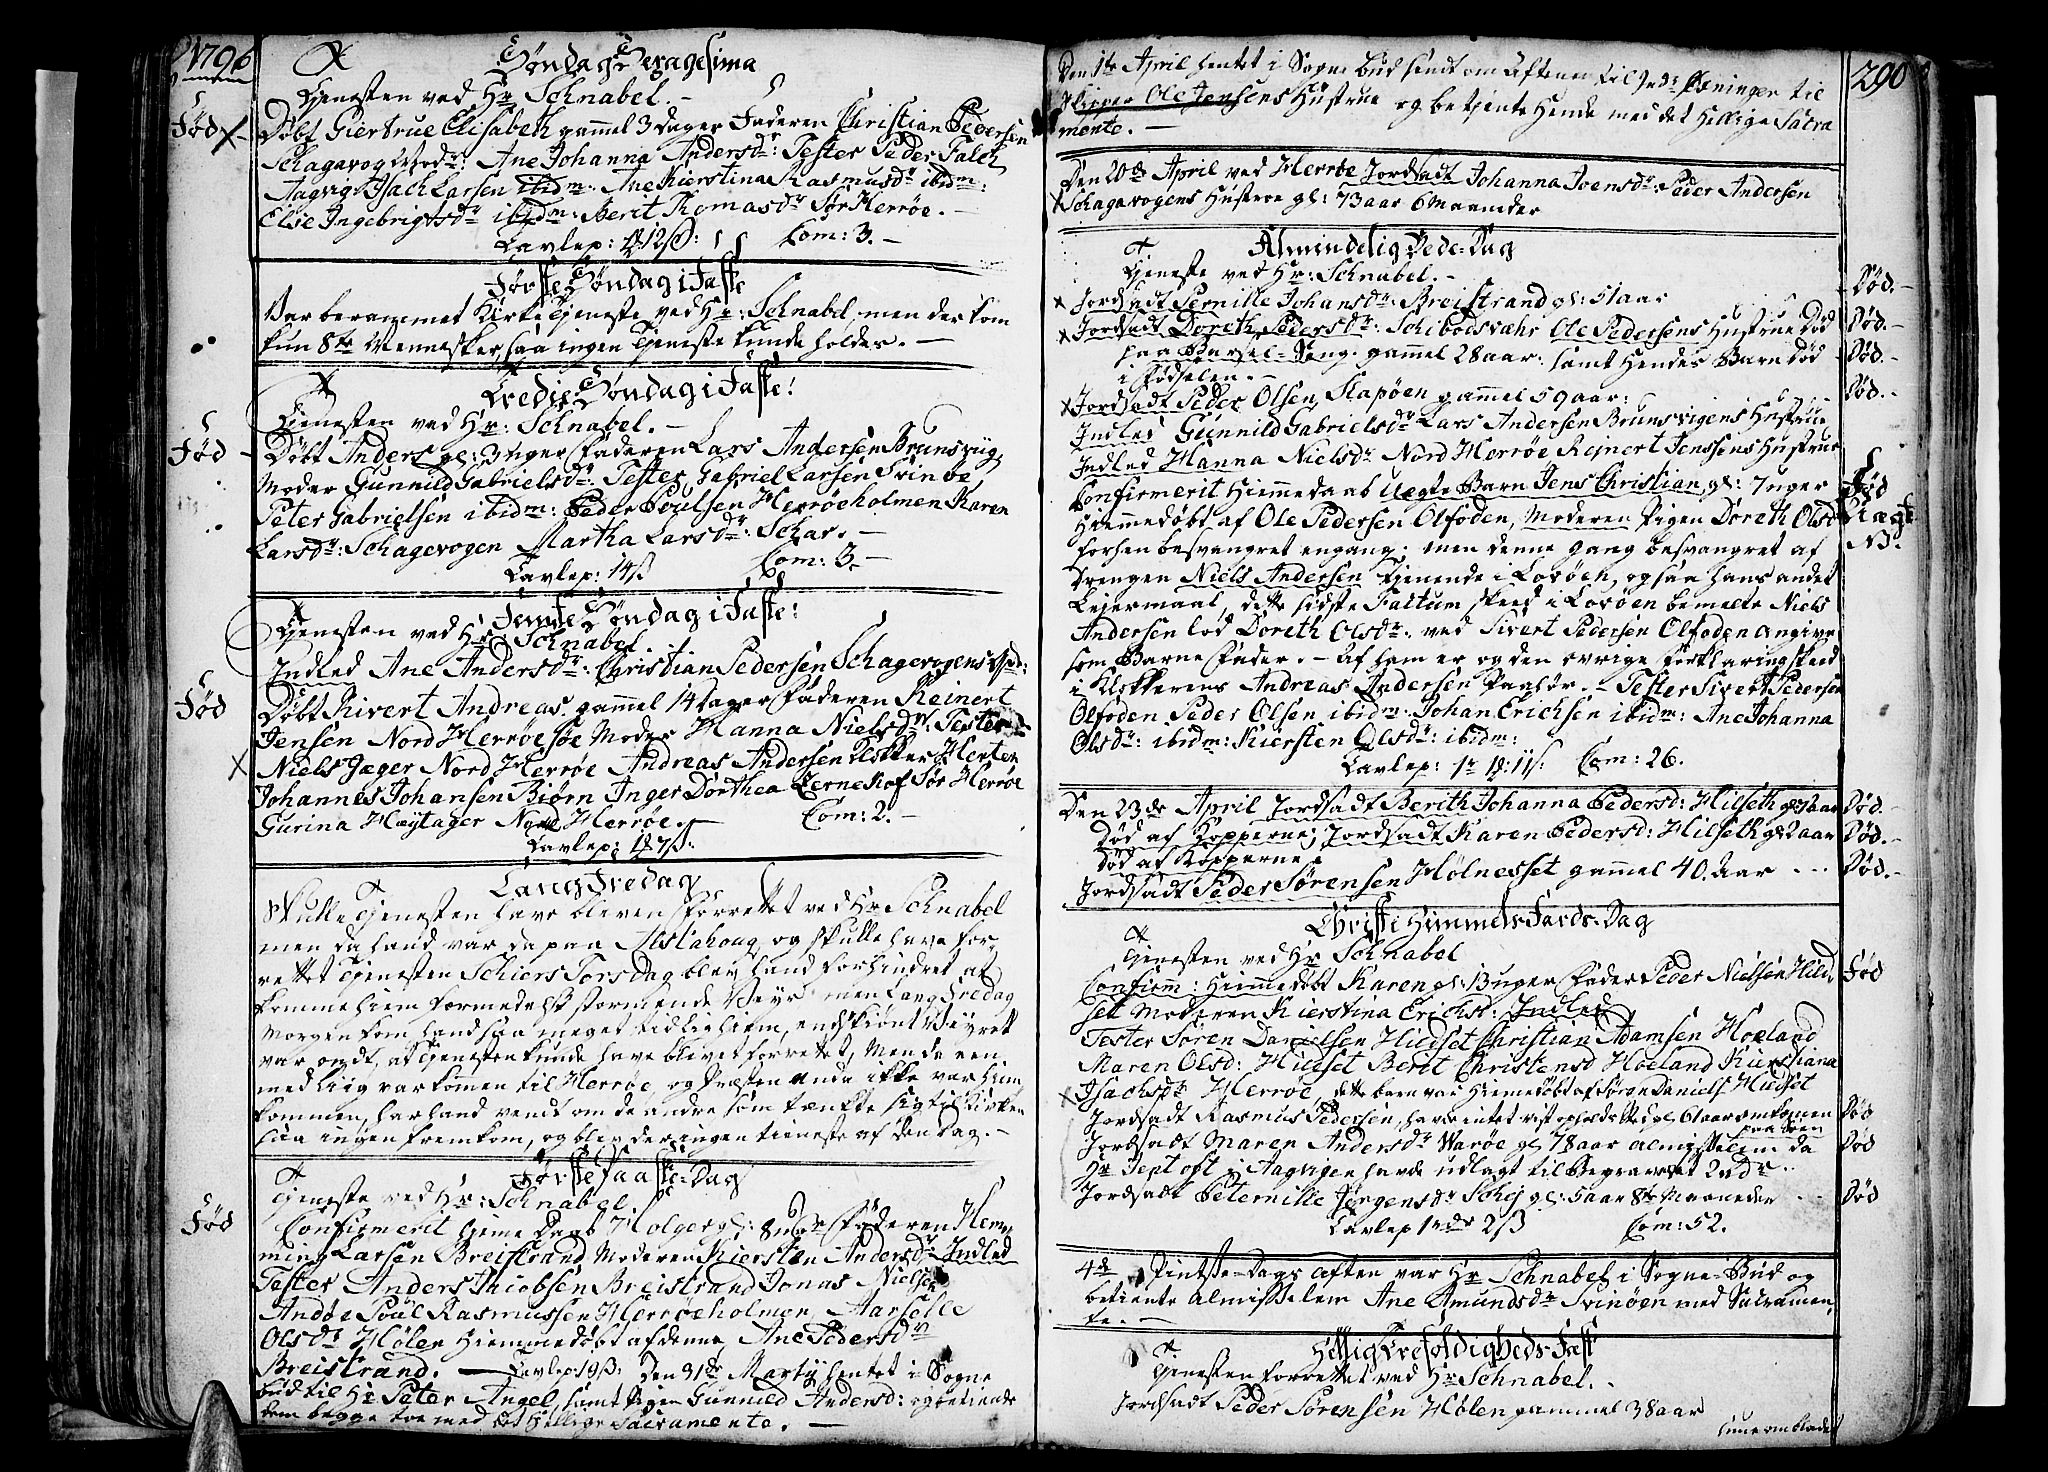 1796
Søndag Sexagesima
Tjenesten ved Hr Schnabel. -
Fød
Døbt Giertrue Elisabeth gammel 3 Dager Faderen Christian Pedersen
Schagevog Modr: Ane Johanna Andersdr: Tester Peder Falch
Aagvig Isach Larsen ibidm: Ane Kierstina Rasmusdr ibidm:
Else Ingebrigtsdr ibidm: Berit Thomasdr Sør Herrøe. -
Tavlep: 12ß: Com: 3. -
Første Søndag i Faste
Var berammet Kirke Tjeneste ved Hr: Schnabel, men der kom
kun 8te Mennesker, saa ingen Tjeneste kunde holdes. -
Tredie Søndag i Faste!
Tjenesten ved Hr: Schnabel. -
Fød
Døbt Anders gl: 3 uger Faderen Lars Andersen Brunsvig,
Moder Gunnild Gabrielsdr: Tester Gabriel Larsen Svinøe
Peter Gabrielsen ibidm: Peder Poulsen Herrøeholmen Karen
Larsdr: Schagevogen Martha Larsdr: Schar. -
Tavlep: 14ß. Com: 3. -
Femte Søndag i Faste!
Tjenesten ved Hr: Schnabel.
Indled Ane Andersdr: Christian Pedersen Schagevogens
Fød
Døbt Sivert Andreas gammel 14 dager Faderen Reinert
Jensen Nord Herrøe Moder Hanna Nielsdr. Tester
Niels Jæger Nord Herrøe Andreas Andersen Klokker Herten
Johannes Johansen Biørn Inger Dorthea Zernehof Sør Herrøe
Gurina Høytager Nord Herrøe. Com: 2. -
Tavlep: 7ß:
Lang Fredag
Skulle Tjenesten have bleven forrettet ved Hr Schnabel
men da hand var da paa Alstahoug, og skulle have for-
rettet Tjenesten Schiers Torsdag blev hand forhindret at
komme hiem formedelst stormende Veyr men Langfredag
Morgen kom hand saa meget tidlig hiem, endskiønt Veyret
var ondt, at Tjenesten kunde have blevet forrettet, Men da een
med Liig var komen til Herrøe, og Præsten enda ikke var hiem
kommen, har hand vendt om de andre som tænkte sig til Kirken
saa ingen fremkom, og blev der ingen tieneste af den Dag. -
Første Paaske-Dag
Tjeneste ved Hr: Schnabel.
Fød
Confirmerit hieme Daab Holger gl: 8 uger Faderen Hem
ming Larsen Breistrand Moderen Kiersten Andersdr: Indled
Tester Anders Jacobsen Breistrand Jonas Nielsen
Andøe Poul Rasmussen Herrøeholmen Marselle
Olsdr Hølen Hiemmedøbt af denne Ane Pedersdr
Breistrand. - Tavlep: 19ß: Den 31de Martij hentet i Sogne
bud til Hr Peter Angel, samt Pigen Gunnild Andersd: og betiente
dem begge toe med det Hellige Sacramente. -
290
Den 1te April hentet i Sogne bud sendt om Aftenen til
Skipper Ole Jensens Hustrue og betjente Hende med det Hellige Sacra
mente. -
Den 20de April ved Herrøe Jordsadt Johanna Joensdr: Peder Andersen
Schagevogens Hustrue gl: 73 aar 6 Maaneder
Almindelig Bede-Dag
Tjeneste ved Hr: Schnabel. -
Jordsadt Pernille Johansdr: Breistrand gl: 51 aar Død. -
Jordsadt Doreth Pedersdr: Schibodsvær Ole Pedersens Hustrue Død Død. -
paa Barsel-Seng. gammel 28 aar: samt Hendes Barn Død Død. -
i Fødselen. -
Jordsadt Peder Olsen Slapøen gammel 59 aar: Død. -
Indled Gunnild Gabrielsdr Lars Andersen Brunsvigens Hustrue
Indled Hanna Nielsdr Nord Herrøe Reinert Jenssens Hustrue
Confirmerit Hiemmedaab Uegte Barn Jens Christian, gl: 7 uger Fød
Hiemmedøbt af Ole Pedersen Olfoden, Moderen Pigen Doreth Olsdr Uægte
forhen besvangret engang; men denne Gang besvangret af NB.
Drengen Niels Andersen tjenende i Lovøen, og saa hans andet
Leiermaal, dette sidste Factum skeed i Lovøen bemelte Niels
Andersen lod Doreth Olsdr: ved Sivert Pedersen Olfoden angive
som Barne Fader. - Af ham er og den øvrige forklaring skeed
i Klokkerens Andreas Andersen Paahør. - Tester Sivert Pedersen
Olfoden Peder Olsen ibidm: Johan Erichsen ibidm: Ane Johanna
Olsdr: ibidm: Kiersten Olsdr: ibidm:
Tavlep: 11ß. Com: 26.
Den 23de April Jordsadt Berith Johanna Pedersd: Hilseth Død. -
Død af Kopperne; Jordsadt Karen Pedersd: Hilseth gl: 2 aar Død. -
Død af Kopperne
Jordsadt Peder Sørensen Hølnesset gammel 40. Aar Død. -
Christi Himmels-Fards-Dag
Tjenesten ved Hr Schnabel
Confirm: Hiemmedøbt Karen gl: 3 uger Fader Peder Nielsen Hild Fød
set Moderen Kierstina Ericksd: Indled
Tester Søren Danielsen Hildset Christian Adamsen Hoeland
Maren Olsd: Hildset Berit Christensd Hoeland Kierstiana
Isachsdr Herrøe, dette barn var Hiemedøbt af Søren Daniels Hildset
Jordsadt Rasmus Pedersen, havde intet vist opholdssted gl: 61 aar omkomen Død
paa Søen
Jordsadt Maren Andersdr Warøe gl: 78 aar almisselem: da Død
Hr Tept oft i Aagvigen havde udlagt til Begravelset 2 rdr
Jordsadt Peternille Jørgensdr Schej gl: 5 aar 8te Maaneder Død
Tavlep 1 rdr 2ß Com: 52.
4de Pintse-Dags Aften var Hr Schnabel i Sogne-Bud og
betiente almisselem Ane Amundsdr Svinøen med Sacramen
te. -
Hellig Trefoldigheds-Fest
Tjenesten forrettet ved Hr Schnabel. -
Jordsadt Peder Sørensen Hølen gammel 38 aar